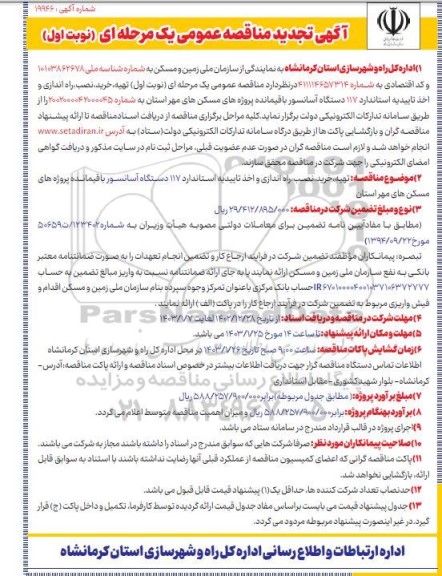 شماره آگهی: ۱۹۹۴۶
آگهی تجدید مناقصه عمومی یک مرحله ای (نوبت اول)
۱) اداره کل راه و شهرسازی استان کرمانشاه به نمایندگی از سازمان ملی زمین و مسکن به شماره شناسه ملی ۱۰۱۰۳۸۶۲۶۷۸
و کد اقتصادی به شماره ۴۱۱۱۱۴۶۵۷۳۱۴ در نظر دارد مناقصه عمومی یک مرحله ای (نوبت اول) تهیه، خرید، نصب، راه اندازی و
اخذ تاییدیه استاندارد ۱۱۷ دستگاه آسانسور باقیمانده پروژه های مسکن های مهر استان به شماره ۲۰۰۲۰۰۰۰۴۲۰۰۰۰۴۵ را از
طریق سامانه تدارکات الکترونیکی دولت برگزار نماید. کلیه مراحل برگزاری مناقصه از دریافت اسناد مناقصه تا ارائه پیشنهاد
مناقصه گران و بازگشایی پاکت ها از طریق درگاه سامانه تدارکات الکترونیکی دولت (ستاد) به آدرس www.setadiran.ir
انجام خواهد شد و لازم است مناقصه گران در صورت عدم عضویت قبلی، مراحل ثبت نام در سایت مذکور و دریافت گواهی
امضای الکترونیکی را جهت شرکت در مناقصه محقق سازند.
۲) موضوع مناقصه: تهیه، خرید، نصب، راه اندازی و اخذ تاییدیه استاندارد ۱۱۷ دستگاه آسانسور باقیمانده پروژه های
مسکن های مهر استان
۳) نوع و مبلغ تضمین شرکت در مناقصه: ۲۹/۴۱۲/۸۹۵/۰۰۰ ریال
(مطابق با مفاد آیین نامه تضمین برای معاملات دولتی مصوبه هیأت وزیران به شماره ۱۲۳۴۰۲/ت۵۰۶۵۹
مورخ ۱۳۹۴/۰۹/۲۲)
تبصره: پیمانکاران موظفند تضمین شرکت در فرآیند ارجاع کار و تضمین انجام تعهدات را به صورت ضمانتنامه معتبر
بانکی به نفع سازمان ملی زمین و مسکن ارائه نمایند یا به جای ارائه ضمانتنامه نسبت به واریز مبالغ تضمین به حساب
حساب بانک مرکزی با عنوان تمرکز وجوه سپرده بنام سازمان ملی زمین و مسکن اقدام و
فیش واریزی مربوط به تضمین شرکت در فرآیند ارجاع کار را در پاکت (الف) ارائه نمایند.
۴) مهلت شرکت در مناقصه و دریافت اسناد: از تاریخ ۱۴۰۲/۱۲/۲۸ لغایت ۱۴۰۳/۱/۷
۵) مهلت و مکان ارائه پیشنهاد: تا ساعت ۱۴ مورخ ۱۴۰۳/۱/۲۵ می باشد.
۶) زمان گشایش پاکات مناقصه: ساعت ۹:۰۰ صبح تاریخ ۱۴۰۳/۱/۲۶ در محل اداره کل راه و شهرسازی استان کرمانشاه
اطلاعات تماس دستگاه مناقصه گزار جهت دریافت اطلاعات بیشتر در خصوص اسناد مناقصه و ارائه پاکت مناقصه: آدرس-
کرمانشاه- بلوار شهید کشوری- مقابل استانداری
۷) مبلغ برآورد پروژه: (مطابق جدول مربوطه) برابر ۵۸۸/۲۵۷/۹۰۰/۰۰۰ ریال
۸) برآورد بهنگام پروژه: برابر ۵۸۸/۲۵۷/۹۰۰/۰۰۰ ریال و میزان اهمیت مناقصه متوسط اعلام می گردد.
۹) اجرای پروژه در قالب قرارداد مندرج در سامانه ستاد می باشد.
۱۰) صلاحیت پیمانکاران مورد نظر: صرفا شرکت هایی که سوابق مندرج در اسناد را داشته باشند مجاز به شرکت می باشند.
۱۱) پاکت مناقصه گرانی که اعضای کمیسیون مناقصه از عملکرد قبلی آنها رضایت نداشته باشند با استناد به سوابق قابل
ارائه، بازگشایی نخواهد شد.
۱۲) حد نصاب تعداد شرکت کننده ها، حداقل یک (۱) پیشنهاد قیمت قابل قبول می باشد.
۱۳) جدول پیشنهاد قیمت می بایست براساس مفاد جدول قیمت ارائه گردیده توسط کارفرما، تکمیل و داخل پاکت (ج) قرار
گیرد. در غیر اینصورت پیشنهاد مربوطه مردود می گردد.
اداره ارتباطات و اطلاع رسانی اداره کل راه و شهرسازی استان کرمانشاه